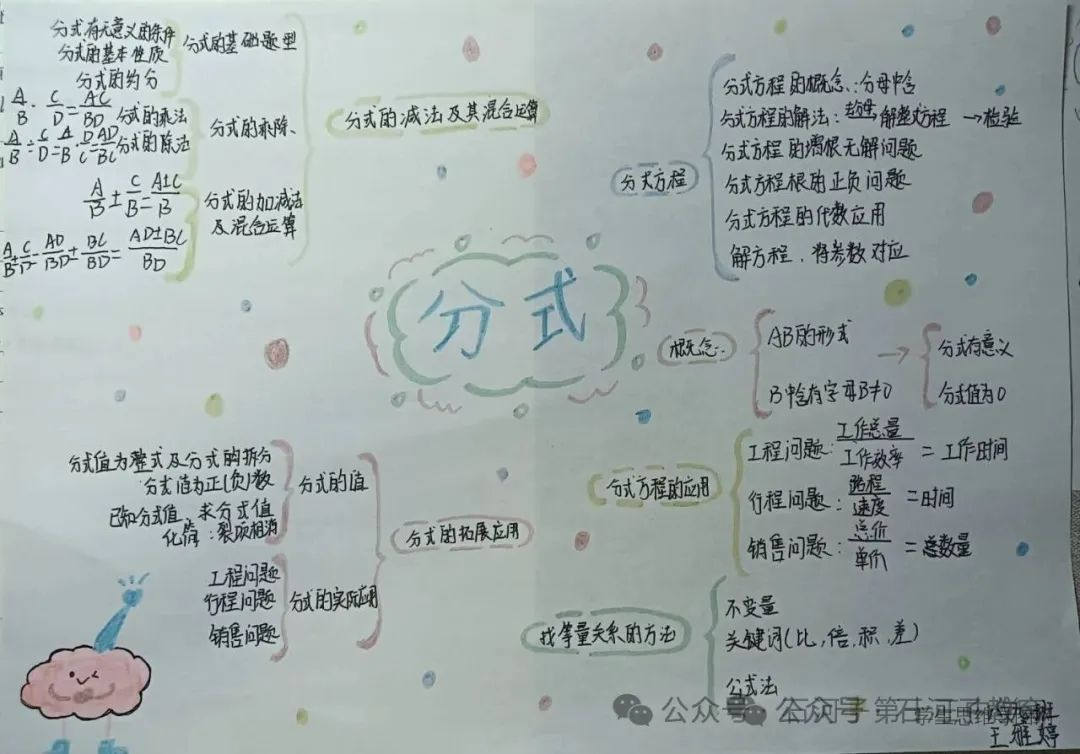 分式
分式的减法及其混合运算
分式的基础题型
分式有无意义的条件
分式的基本性质
分式的约分
分式的乘除、
A/B · C/D = AC/BD 分式的乘法
A/B ÷ C/D = A/B · D/C = AD/BC 分式的除法
分式的加减法
及混合运算
A/B ± C/B = A±C/B
A/B ± C/D = AD/BD ± BC/BD = AD±BC/BD
分式方程
分式方程的概念：分母中含
分式方程的解法：去分母 解整式方程 →检验
分式方程的增根无解问题
分式方程根的正负问题
分式方程的代数应用
解方程、将参数对应
概念：
AB的形式
B中含有字母B≠0
→
分式有意义
分式值为0
分式方程的应用
工程问题：工作总量/工作效率 = 工作时间
行程问题：路程/速度 = 时间
销售问题：总价/单价 = 总数量
找等量关系的方法
不变量
关键词（比，倍，积，差）
公式法
分式的拓展应用
分式的值
分式值为整式及分式的拆分
分式值为正(负)数
已知分式值，求分式值
化简：裂项相消
分式的实际应用
工程问题
行程问题
销售问题
公众号 公众号